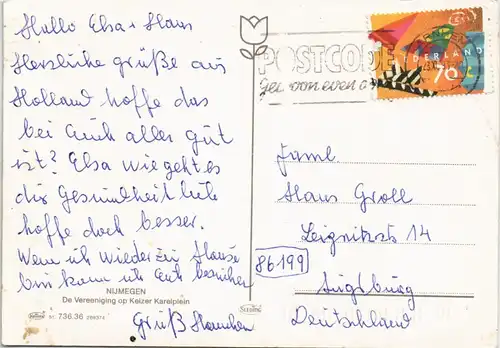 Hallo Elsa + Hans
Herzliche grüße aus
Holland hoffe das
bei Euch alles gut
ist? Elsa wie geht es
dir Gesundheitlich
hoffe doch besser.
Wenn ich wieder zu Hause
bin kann ich Euch besuchen
Gruß
NIJMEGEN
De Vereeniging op Keizer Karelplein
736.36
POSTCODE
NEDERLAND
70 c
Faml.
Hans Groll
Leignitzstr 14
86199
Augsburg
Deutschland